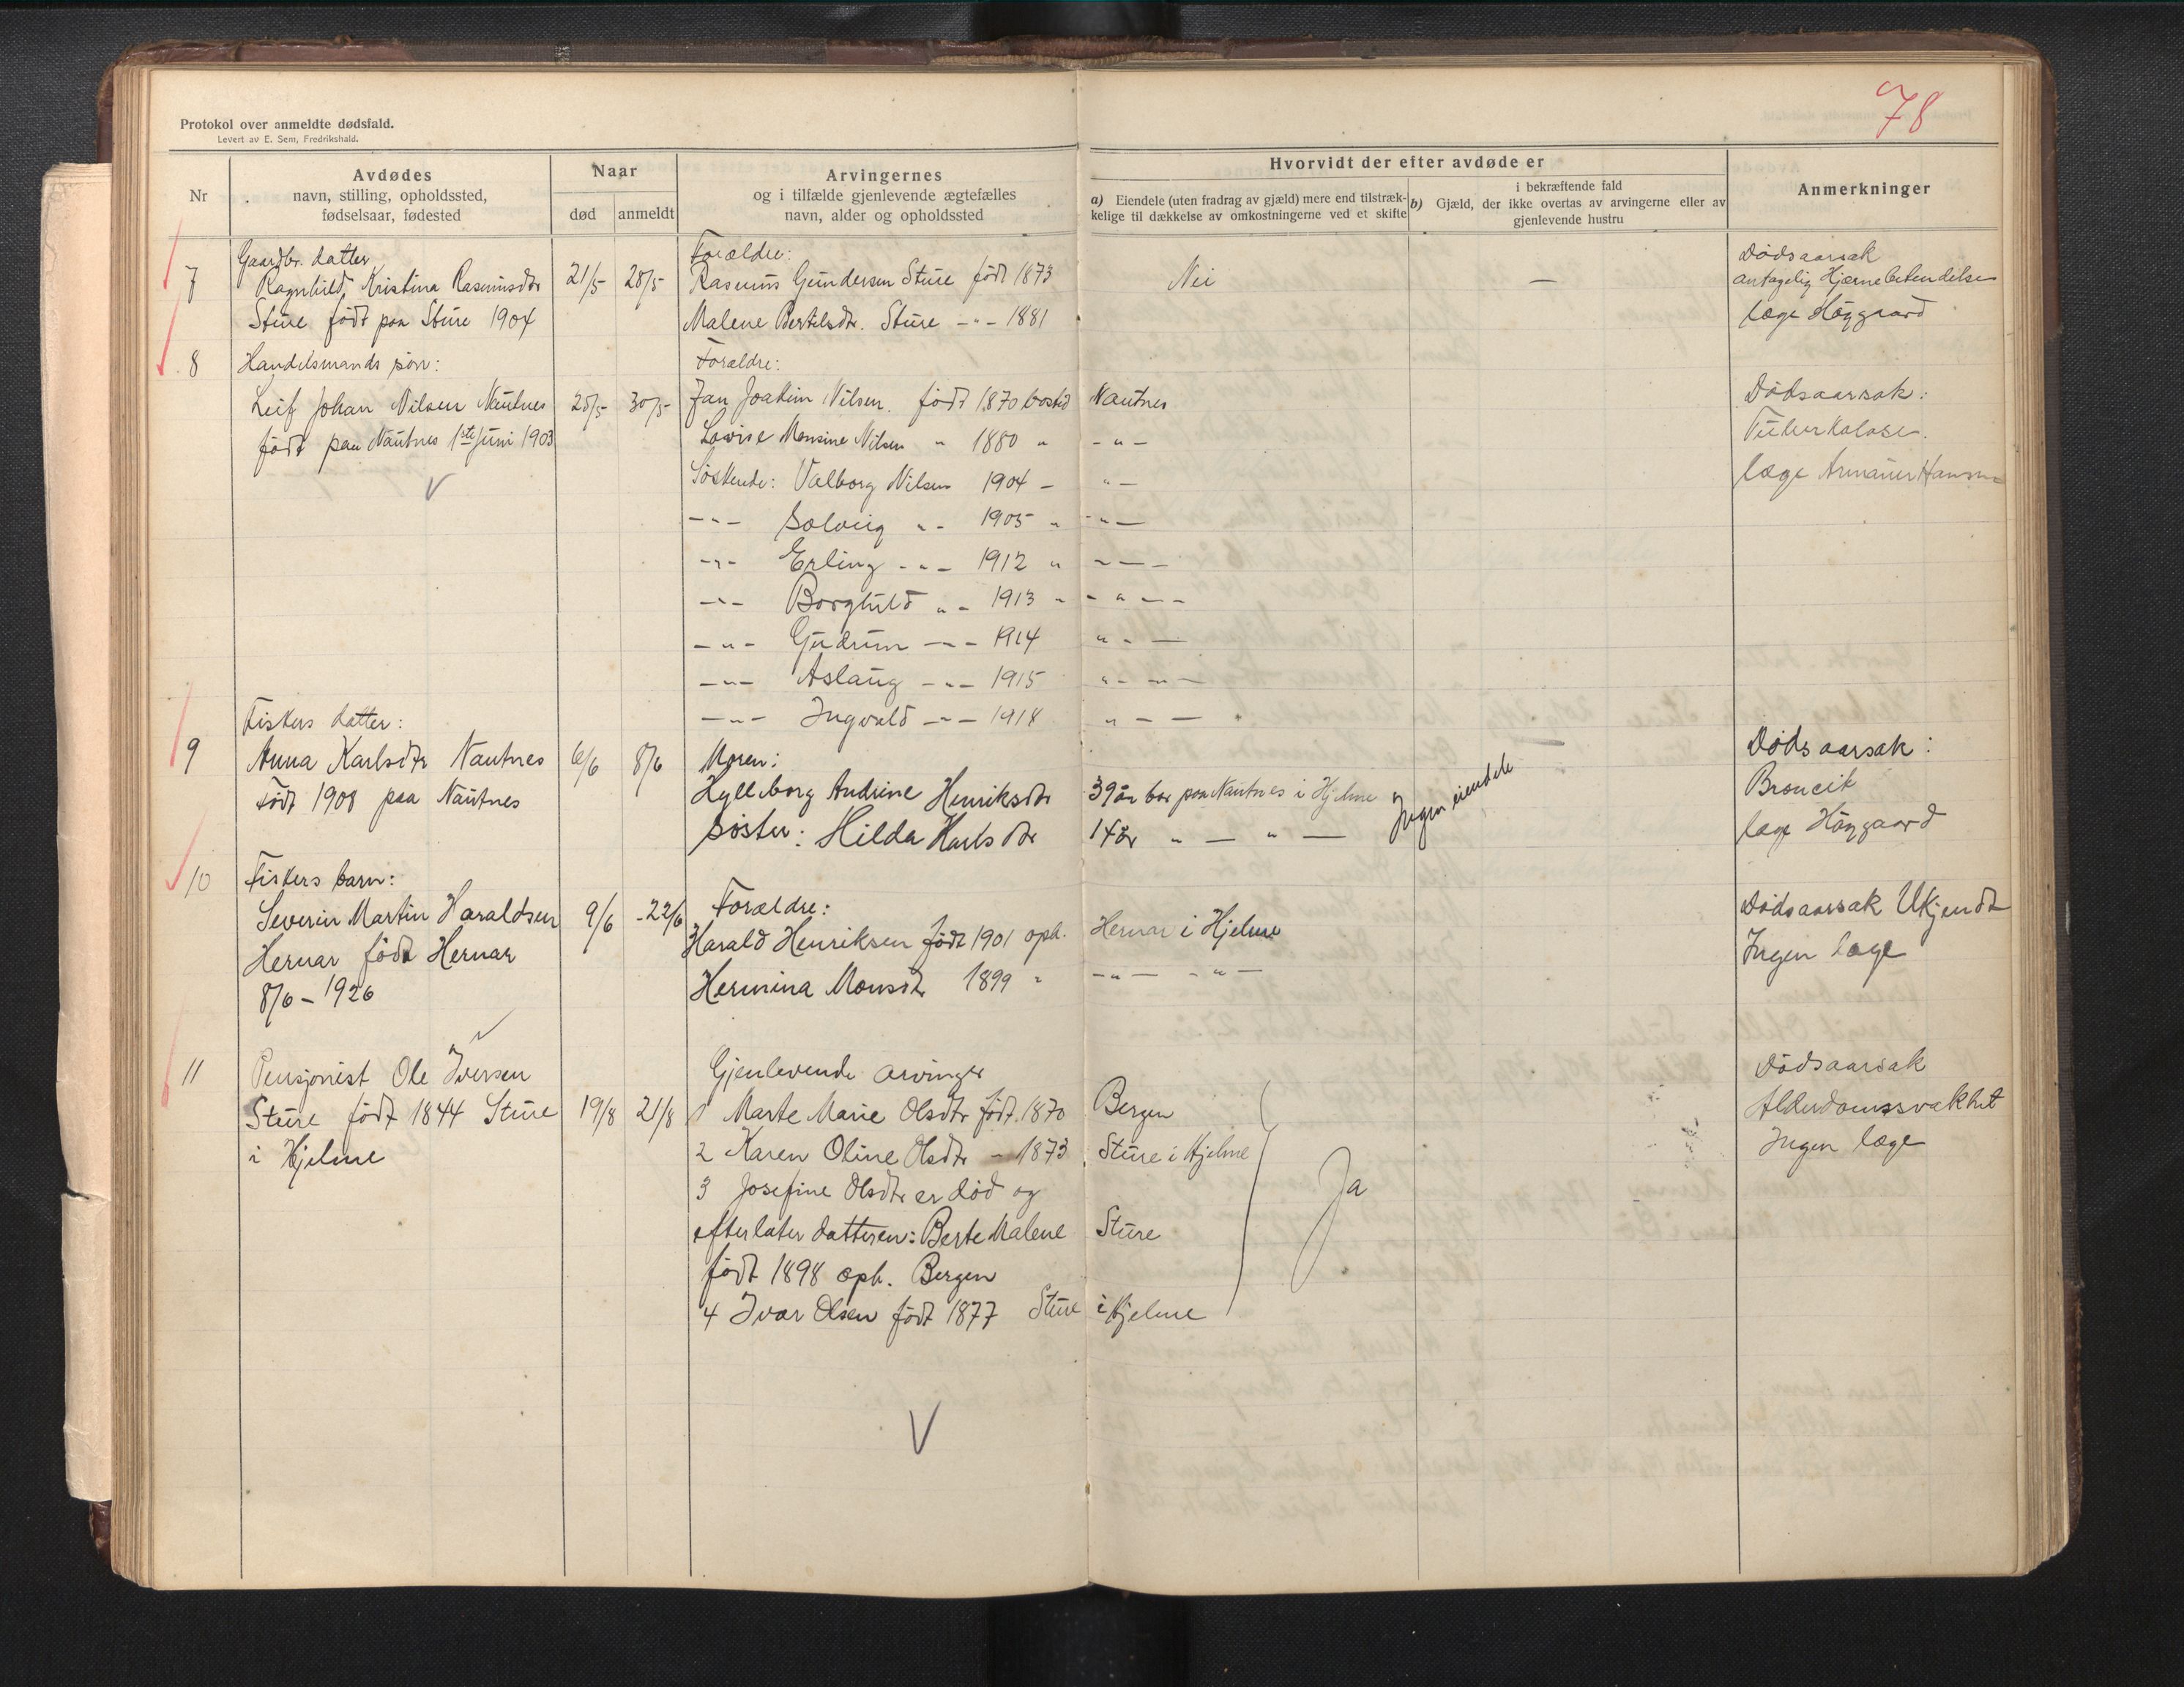 78
Protokol over anmeldte dødsfald.
Levert av E. Sem, Fredrikshald.
Nr
Avdødes
navn, stilling, opholdssted,
fødselsaar, fødested
Naar
død
anmeldt
Arvingernes
og i tilfælde gjenlevende ægtefælles
navn, alder og opholdssted
Hvorvidt der efter avdøde er
a) Eiendele (uten fradrag av gjæld) mere end tilstræk-
kelige til dækkelse av omkostningerne ved et skifte
i bekræftende fald
b) Gjæld, der ikke overtas av arvingerne eller av
gjenlevende hustru
Anmerkninger
7
Gaardbr. datter
Ragnhild, Kristina Rasmusdtr
Sture født paa Sture 1904
21/5
28/5
Forældre:
Rasmus Gundersen Sture født 1873
Malene Bertelsdtr. Sture -"- 1881
Nei
—
Dødsaarsak
antagelig Hjernebetendelse
læge Høggaard
8
Handelsmands søn:
Leif Johan Nilsen Nautnes
født paa Nautnes 1ste Juni 1903
28/5
30/5
Forældre:
Jan Joakim Nilsen. født 1870 bosted Nautnes
Lovise Monsine Nilsen " 1880 " -"-
Søskende: Valborg Nilsen 1904 - "-
-"- Solveig "- 1905 " -"-
-"- Erling -"- 1912 " -"-
-"- Borghild "- 1913 - -"--
-"- Gudrun -"- 1914 "--
-"- Aslaug -"- 1915 "- -"-
-"- Ingvald -"- 1918 "--
Dødsaarsak:
Tuberkolose.
læge Armauer Hansen
9
Fiskers datter:
Anna Karlsdtr Nautnes
Født 1908 paa Nautnes
6/6
8/6
Moren:
Hylleborg Andrine Henriksdtr 39 år bor paa Nautnes i Hjelme
søster: Hilda Karlsdtr 14 år " - " -
Ingen eiendele
—
Dødsaarsak:
Broncit
læge Høggaard
10
Fiskers barn:
Severin Martin Haraldsen
Hernar født Hernar
8/6 - 1926
9/6
22/6
Forældre:
Harald Henriksen født 1901 oph. Hernar i Hjelme
Hermina Monsdtr 1899 " -"- -"-
Dødsaarsak Ukjendt
Ingen læge
11
Pensjonist Ole Iversen
Sture født 1844 Sture
i Hjelme
19/8
21/8
Gjenlevende arvinger
1 Marte Marie Olsdtr født 1870 Bergen
2 Karen Oline Olsdtr - 1873 Sture i Hjelme
3 Josefine Olsdtr er død og
efterlater datteren: Berte Malene Sture
født 1898 oph. Bergen
4 Ivar Olsen født 1877 Sture i Hjelme
Ja
Dødsaarsak
Alderdomssvakhet
Ingen læge